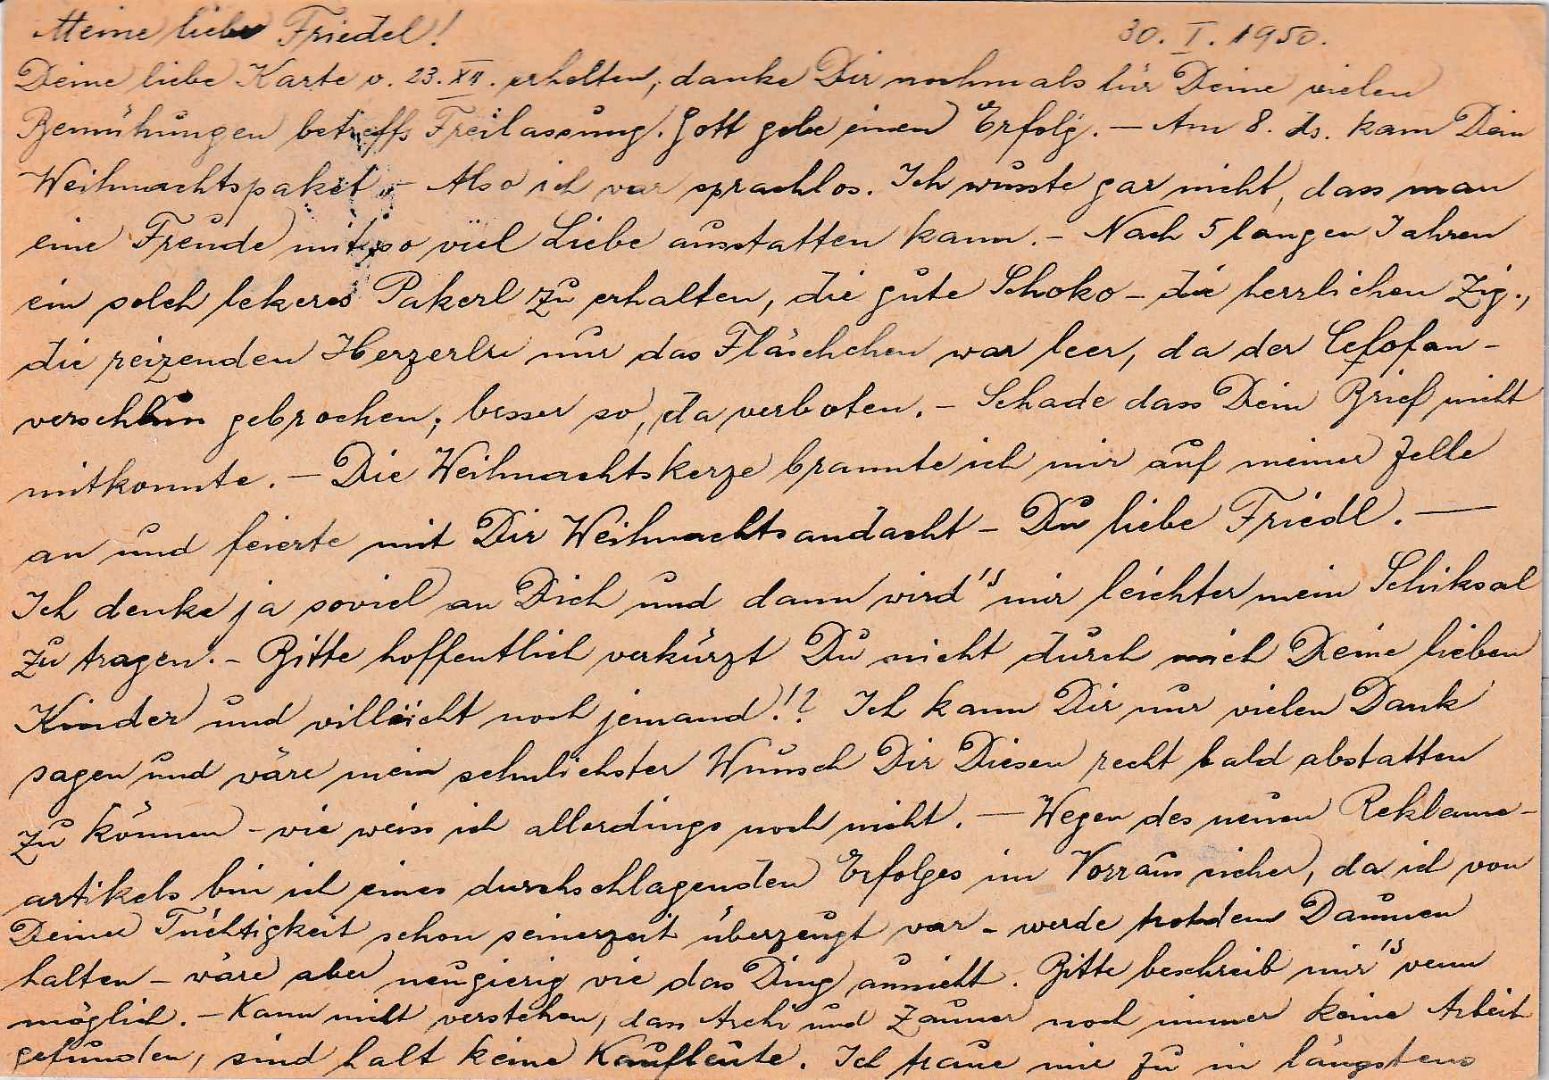 Meine liebe Friedel! 30. I. 1950.
Deine liebe Karte v. 23. XII. erhalten, danke Dir nochmals für Deine vielen
Bemühungen betreffs Freilassung. Gott gebe einen Erfolg. — Am 8. ds. kam Dein
Weihnachtspaket. — Also ich war sprachlos. Ich wusste gar nicht, dass man
eine Freude mit so viel Liebe ausstatten kann. — Nach 5 langen Jahren
ein solch lekeres Pakerl zu erhalten, die gute Schoko — die herrlichen Zig.,
die reizenden Herzerln nur das Fläschchen war leer, da der Cefofan-
verschluss gebrochen; besser so, da verboten. — Schade dass Dein Brief nicht
mitkonnte. — Die Weihnachtskerze brannte ich mir auf meiner Zelle
an und feierte mit Dir Weihnachtsandacht — Du liebe Friedl. —
Ich denke ja soviel an Dich und dann wird's mir leichter mein Schiksal
zu tragen. — Bitte hoffentlich verkürzt Du nicht durch mich Deine lieben
Kinder und villeicht noch jemand!? Ich kann Dir nur vielen Dank
sagen und wäre mein sehnlichster Wunsch Dir Diesen recht bald abstatten
zu können — wie weiss ich allerdings noch nicht. — Wegen des neuen Reklame-
artikels bin ich eines durchschlagenden Erfolges im Vorraus sicher, da ich von
Deiner Tüchtigkeit schon seinerzeit überzeugt war — werde trotzdem Daumen
halten — wäre aber neugierig wie das Ding aussieht. Bitte beschreib mir's wenn
möglich. — Kann nicht verstehen, dass und Zauner noch immer keine Arbeit
gefunden, sind halt keine Kaufleute. Ich traue mir zu in längstens